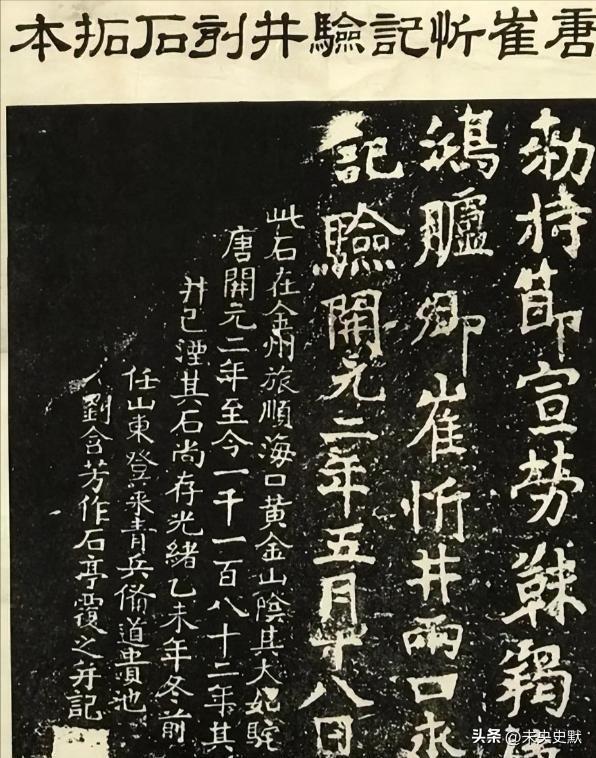 唐崔忻記驗井刻石拓本
勅持節宣勞靺鞨
鴻臚卿崔忻井兩口永
記驗開元二年五月十八日
此石在金州旅順海口黃金山陰其大如駝
唐開元二年至今一千一百八十二年其
井已湮其石尚存光緒乙未年冬前
任山東登萊青兵備道貴池
劉含芳作石亭覆之并記
头条 @未央史默